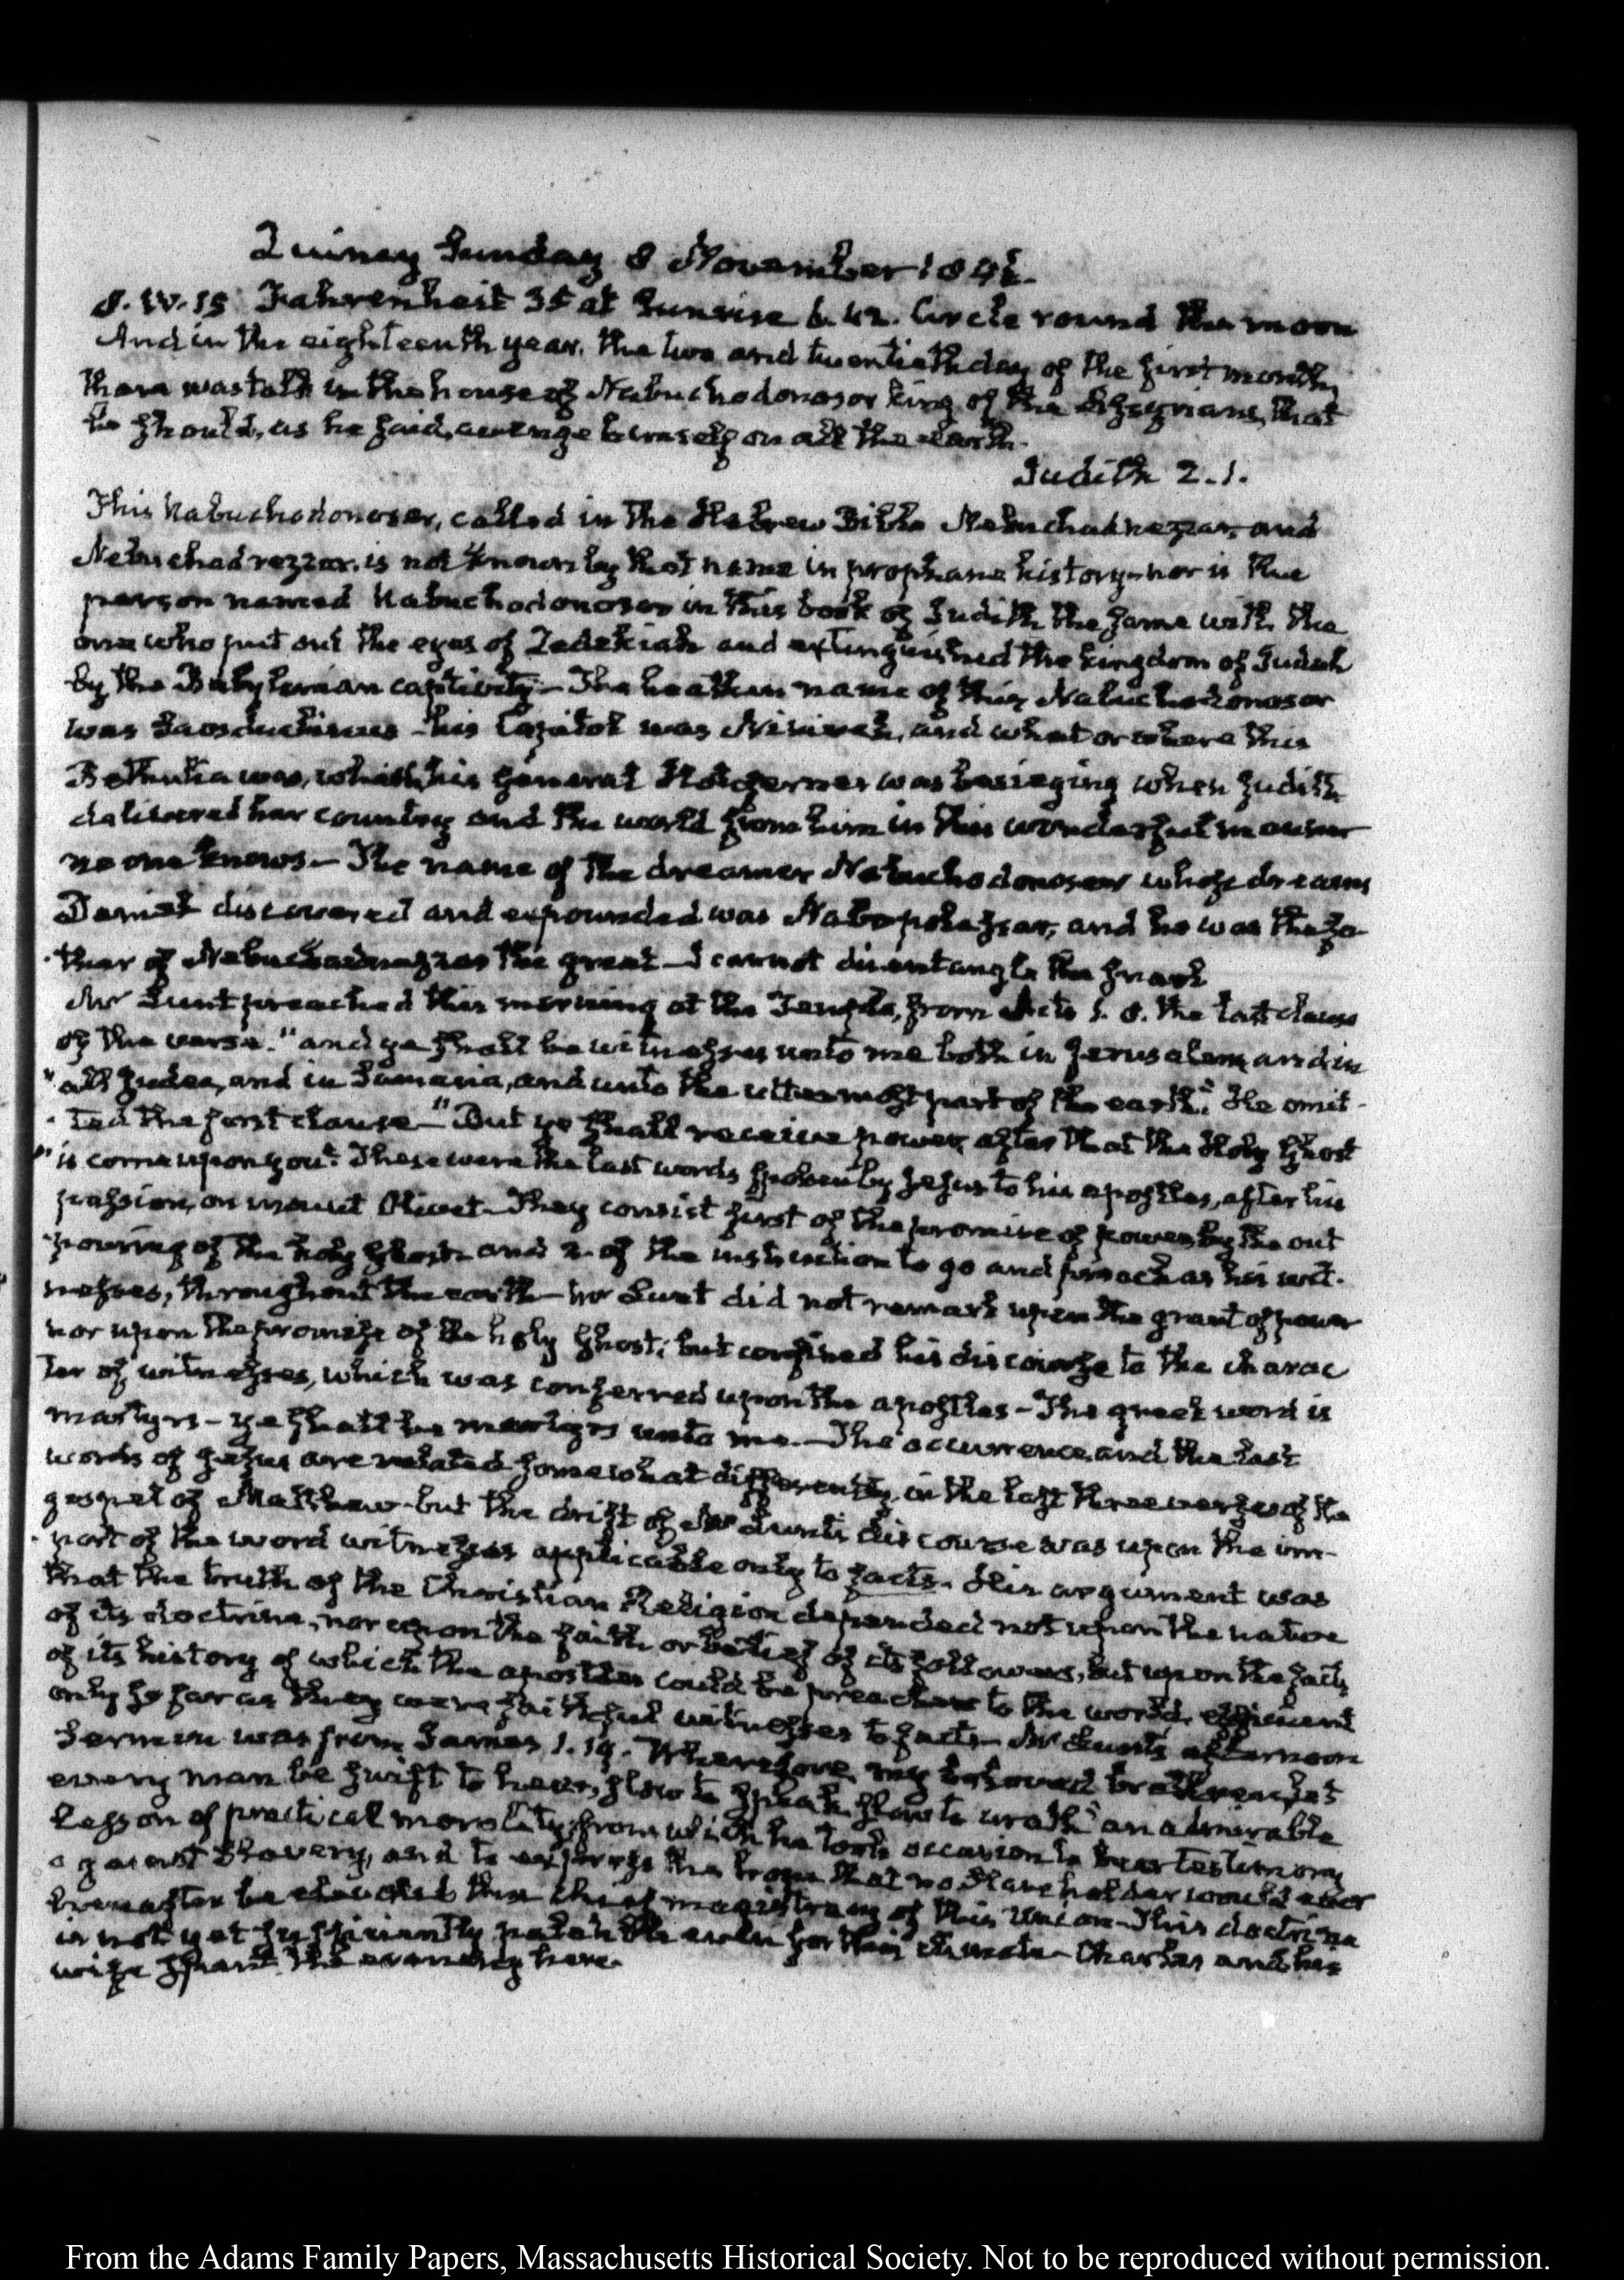 Quincy Sunday 8 November 1846.
S. W. 15 Fahrenheit 35 at Sunrise 6. 42. Circle round the moon
And in the eighteenth year, the two and twentieth day of the first month,
there was talk in the house of Nabuchodonosor king of the Assyrians, that
he should, as he said, avenge himself on all the earth.
Judith 2. 1.
This Nabuchodonosor, called in the Hebrew Bible Nebuchadnezzar, and
Nebuchadrezzar, is not known by that name in prophane history—nor is the
person named Nabuchodonosor in this book of Judith the same with the
one who put out the eyes of Zedekiah and extinguished the kingdom of Judah
by the Babylonian captivity—The heathen name of this Nabuchodonosor
was Saosduchinus—his Capitol was Niniveh, and what or where this
Bethulia was, which his General Holofernes was besieging when Judith
delivered her country and the world from him in this wonderful manner
no one knows—The name of the dreamer Nabuchodonosor whose dreams
Daniel discovered and expounded was Nabopolassar, and he was the fa-
ther of Nebuchadnezzar the great—I cannot disentangle the snarl
Mr Lunt preached this morning at the Temple, from Acts 1. 8. the last clause
of the verse. "and ye shall be witnesses unto me both in Jerusalem, and in
"all Judea, and in Samaria, and unto the uttermost part of the earth." He omit-
ted the first clause—"But ye shall receive power, after that the Holy Ghost
"is come upon you". These were the last words spoken by Jesus to his apostles, after his
passion, on mount Olivet—They consist first of the promise of power by the out
pouring of the holy Ghost and 2. of the instruction to go and preach as his wit-
nesses, throughout the earth—Mr Lunt did not remark upon the grant of power
nor upon the promise of the holy Ghost; but confined his discourse to the charac
ter of witnesses, which was conferred upon the apostles—The greek word is
martyrs—ye shall be martyrs unto me.—The occurrence, and the last
words of Jesus are related somewhat differently, in the last three verses of the
gospel of Matthew—but the drift of Mr Lunt's discourse was upon the im-
port of the word witnesses applicable only to facts. His argument was
that the truth of the Christian Religion depended not upon the nature
of its doctrine, nor upon the faith or belief of its followers, but upon the facts
of its history of which the apostles could be preachers to the world, efficient
only so far as they were faithful witnesses to facts—Mr Lunt's afternoon
Sermon was from James 1. 19. Wherefore my beloved brethren, let
every man be swift to hear, slow to speak, slow to wrath" an admirable
Lesson of practical morality, from which he took occasion to bear testimony
against Slavery, and to express the hope that no Slave holder would ever
hereafter be elevated to the chief magistracy of this Union—This doctrine
is not yet sufficiently palatable even for this climate—Charles and his
wife spent the evening here.
From the Adams Family Papers, Massachusetts Historical Society. Not to be reproduced without permission.